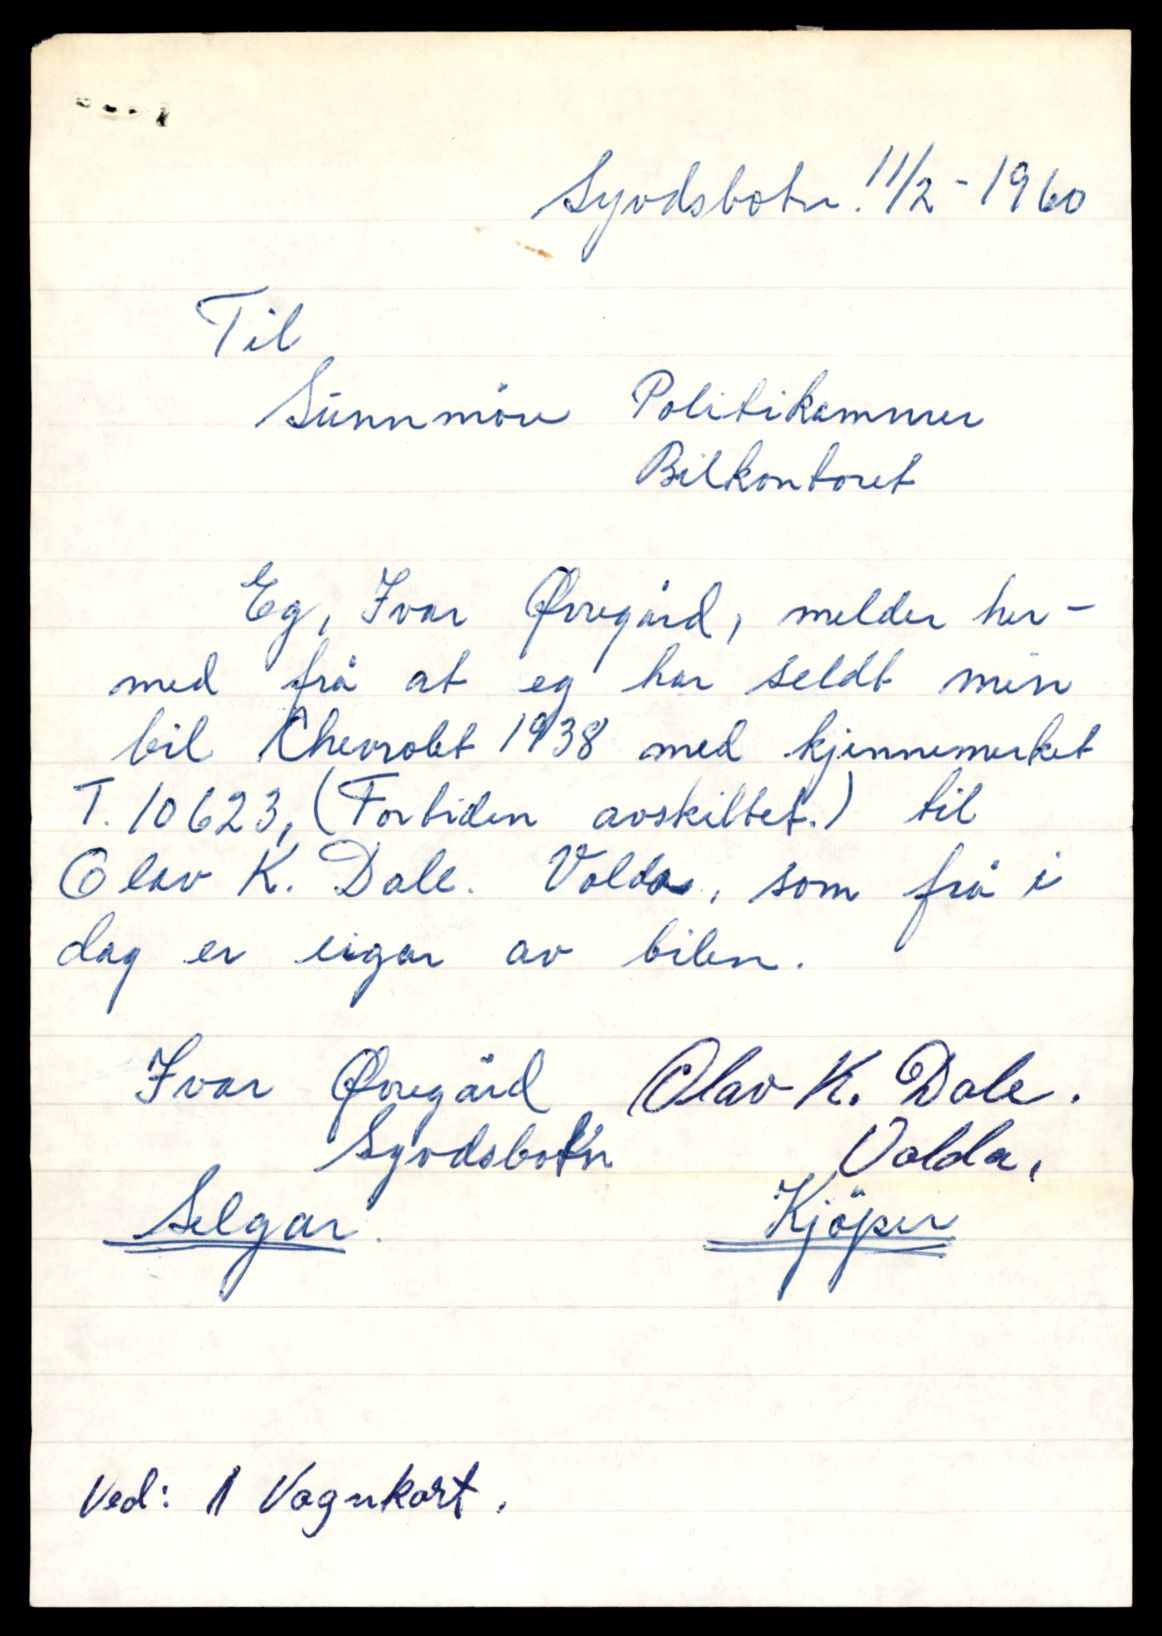 Syvdsbotn. 11/2 - 1960
Til
Sunnmöre Politikammer
Bilkontoret
Eg, Ivar Øvregård, melder her-
med frå at eg har seldt min
bil Chevrolet 1938 med kjennemerket
T. 10623, (Fortiden avskiltet.) til
Olav K. Dale. Volda, som frå i
dag er eigar av bilen.
Ivar Øvregård Olav K. Dale.
Syvdsbotn Volda,
Selgar. Kjöper
Ved: 1 Vognkort.